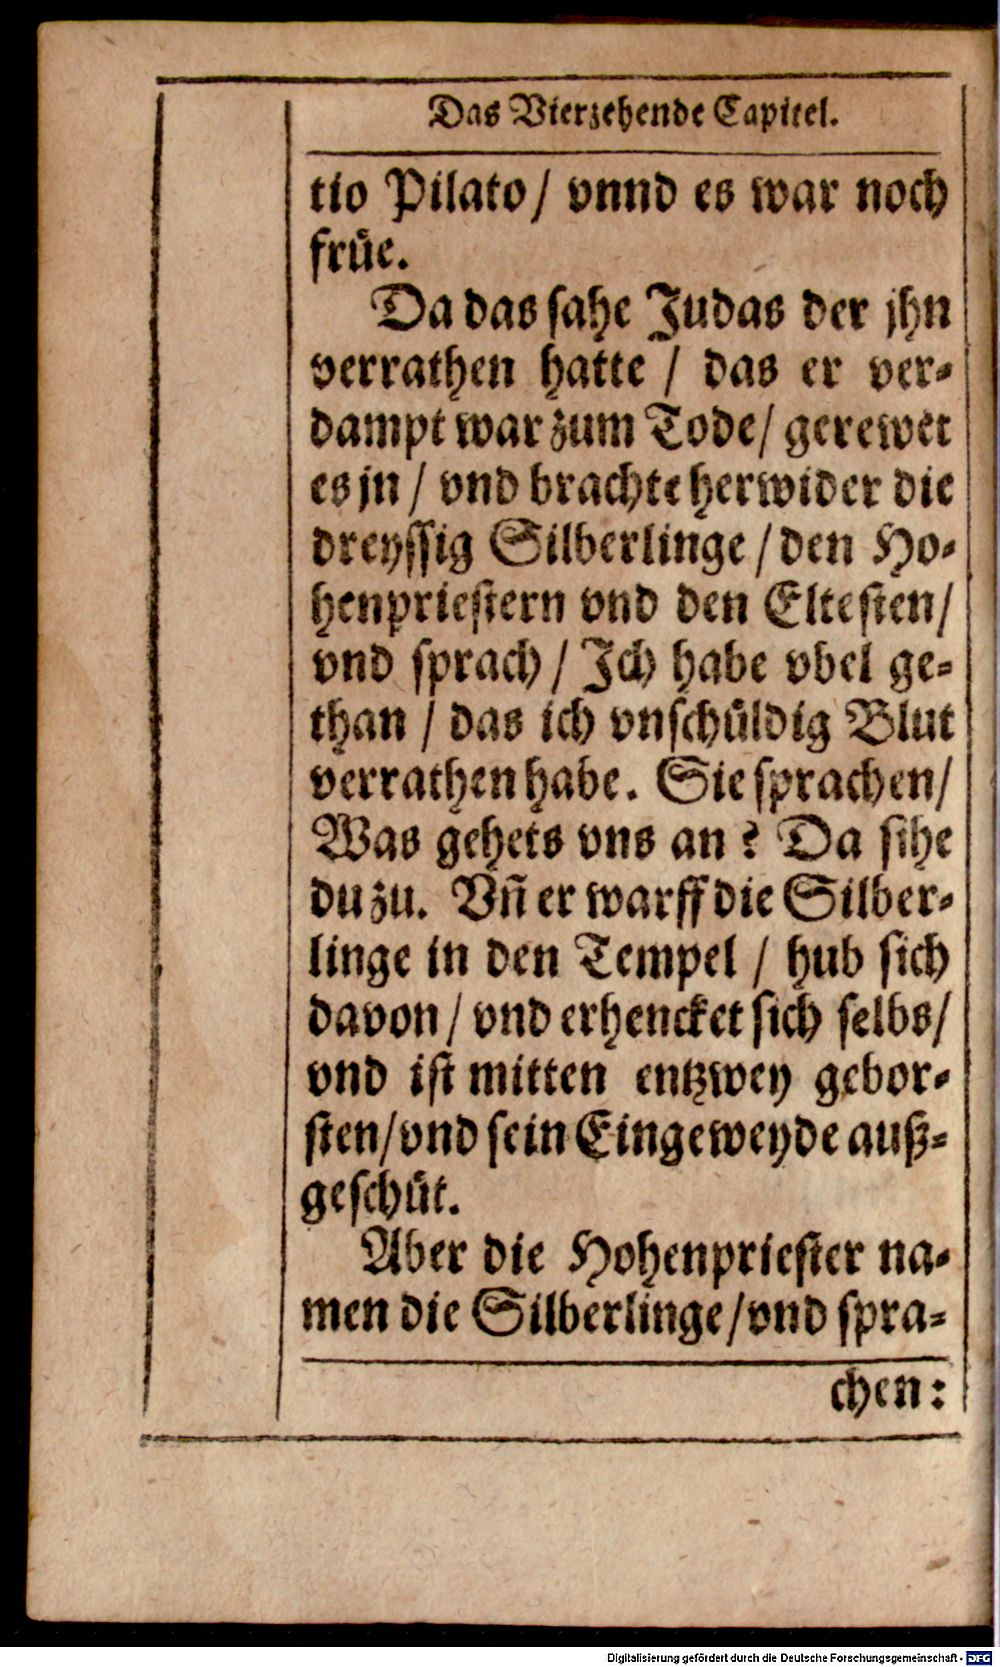 Das Vierzehende Capitel.
tio Pilato / vnnd es war noch
früe.
Da das sahe Judas der jhn
verrathen hatte / das er ver-
dampt war zum Tode / gerewet
es jn / vnd brachte herwider die
dreyssig Silberlinge / den Ho-
henpriestern vnd den Eltesten /
vnd sprach / Ich habe vbel ge-
than / das ich vnschüldig Blut
verrathen habe. Sie sprachen /
Was gehets vns an? Da sihe
du zu. Vn̄ er warff die Silber-
linge in den Tempel / hub sich
davon / vnd erhencket sich selbs /
vnd ist mitten entzwey gebor-
sten / vnd sein Eingeweyde auß-
geschüt.
Aber die Hohenpriester na-
men die Silberlinge / vnd spra-
chen:
Digitalisierung gefördert durch die Deutsche Forschungsgemeinschaft - DFG